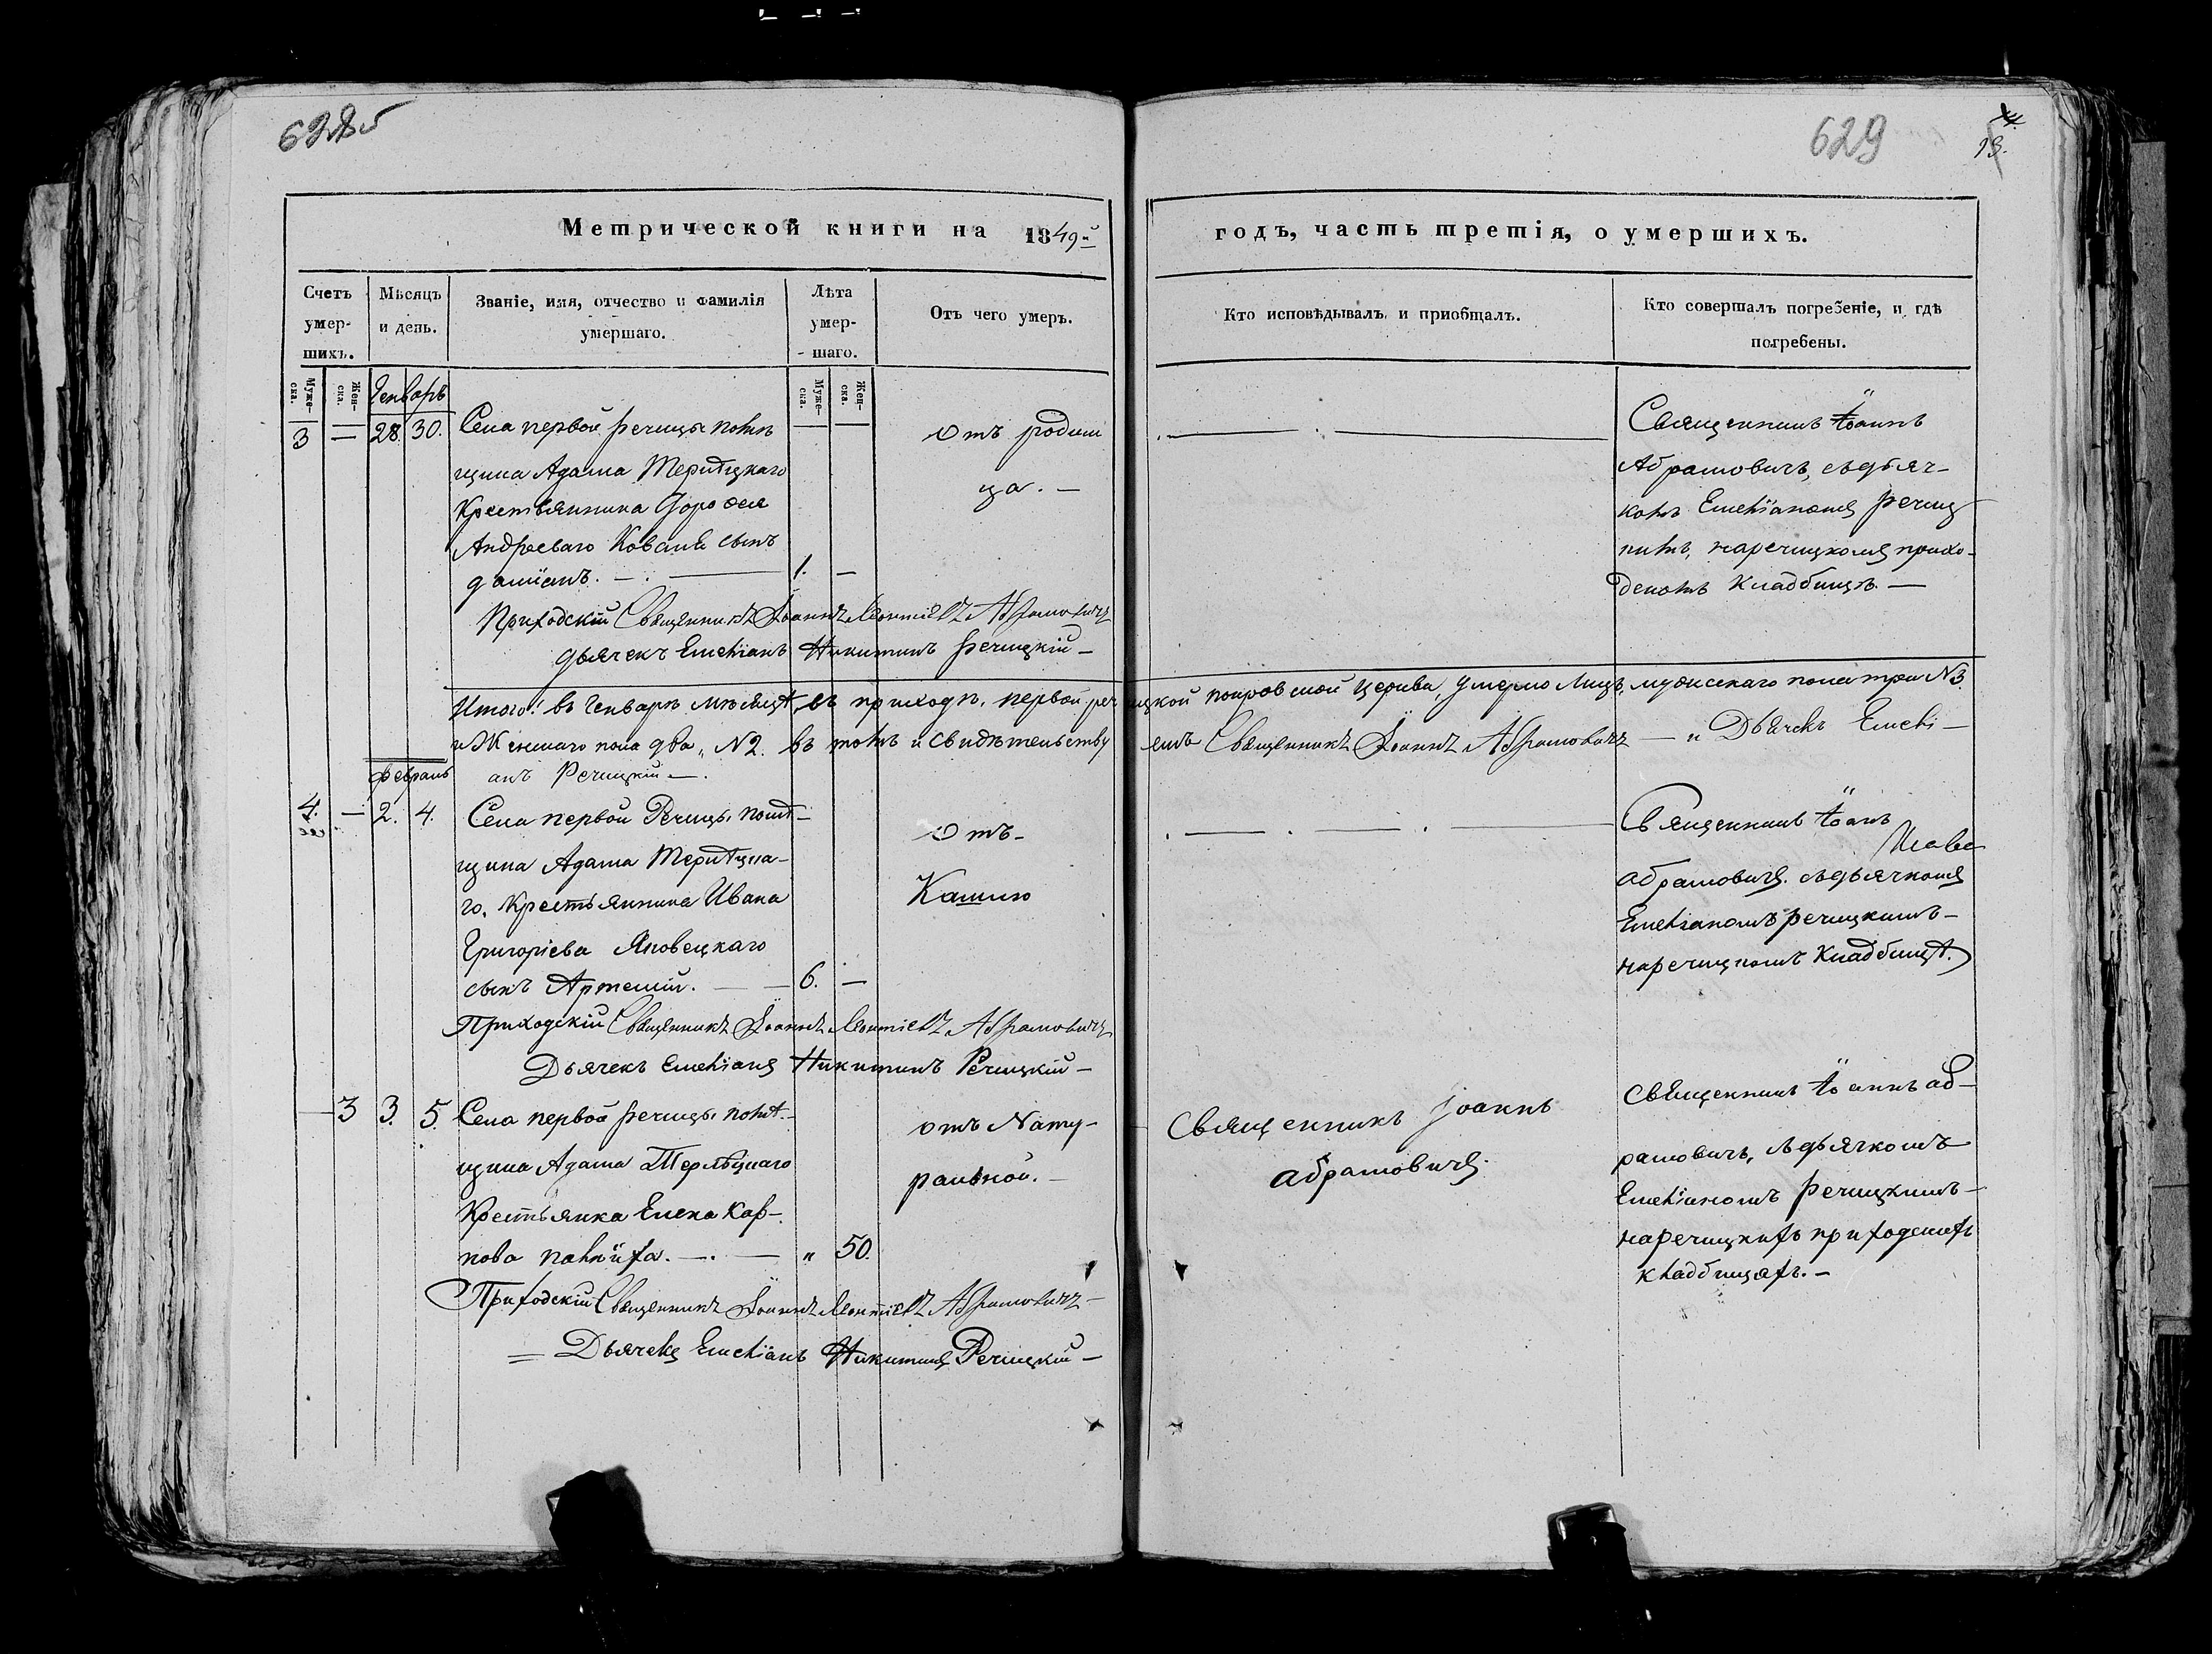 629
13.
Метрической книги на 1849й годъ, часть третія, о умершихъ.
Счетъ умер-шихъ.
Мѣсяцъ и день.
Званіе, имя, отчество и фамилія умершаго.
Лѣта умер-шаго.
Отъ чего умеръ.
Кто исповѣдывалъ и пріобщалъ.
Кто совершалъ погребеніе, и гдѣ погребены.
Муже-ска.
Жен-ска.
Муже-ска.
Жен-ска.
Генварь
3 — 28. 30.
Села первой речицы помѣ
щика Адама Терлѣцкаго
Крестьянина
Андреева Коваля сынъ
даміанъ. — 1. —
отъ родим
ца. —
Священникъ Іоаннъ
Абрамовичъ, съ дьяч-
комъ Емеліаномъ речиц
кимъ, на речицкомъ прихо-
дскомъ кладбищѣ. —
Приходскій Священникъ Іоаннъ Леонтіевъ Абрамовичъ
дьячекъ Емеліанъ Никитинъ Речицкій —
Итого: въ Генварѣ мѣсяцѣ, въ приходѣ первой речицкой покровской церкви, умерло лицъ, мужескаго пола три №3.
и Женскаго пола два, №2. въ томъ и свидѣтельствуемъ Священникъ Іоаннъ Абрамовичъ — и Дьячекъ Емелі —
анъ Речицкій —.
февраль
4. — 2. 4.
Села первой Речицы помѣ —
щика Адама Терлѣцка —
го, крестьянина Ивана
Григоріева Яновецкаго
сынъ Артемій. — 6. —
отъ —
Кашлю
Священникъ Іоанъ
Абрамовичъ. съ дьячкомъ
Емеліаномъ речицкимъ —
на речицкомъ кладбищѣ.
Приходскій Священникъ Іоаннъ Леонтіевъ Абрамовичъ
Дьячекъ Емеліанъ Никитинъ Речицкій —
— 3 3. 5.
Села первой речицы помѣ —
щика Адама Терлѣцкаго
Крестьянка Елена Кар —
пова — „ 50.
отъ Нату —
ральной. —
Священникъ Іоаннъ
Абрамовичъ.
Священникъ Іоаннъ Аб —
рамовичъ, съ дьячкомъ
Емеліаномъ речицкимъ —
на речицкихъ приходскихъ
кладбищахъ. —
Приходскій Священникъ Іоаннъ Леонтіевъ Абрамовичъ —
= Дьячекъ Емеліанъ Никитинъ Речицкій —